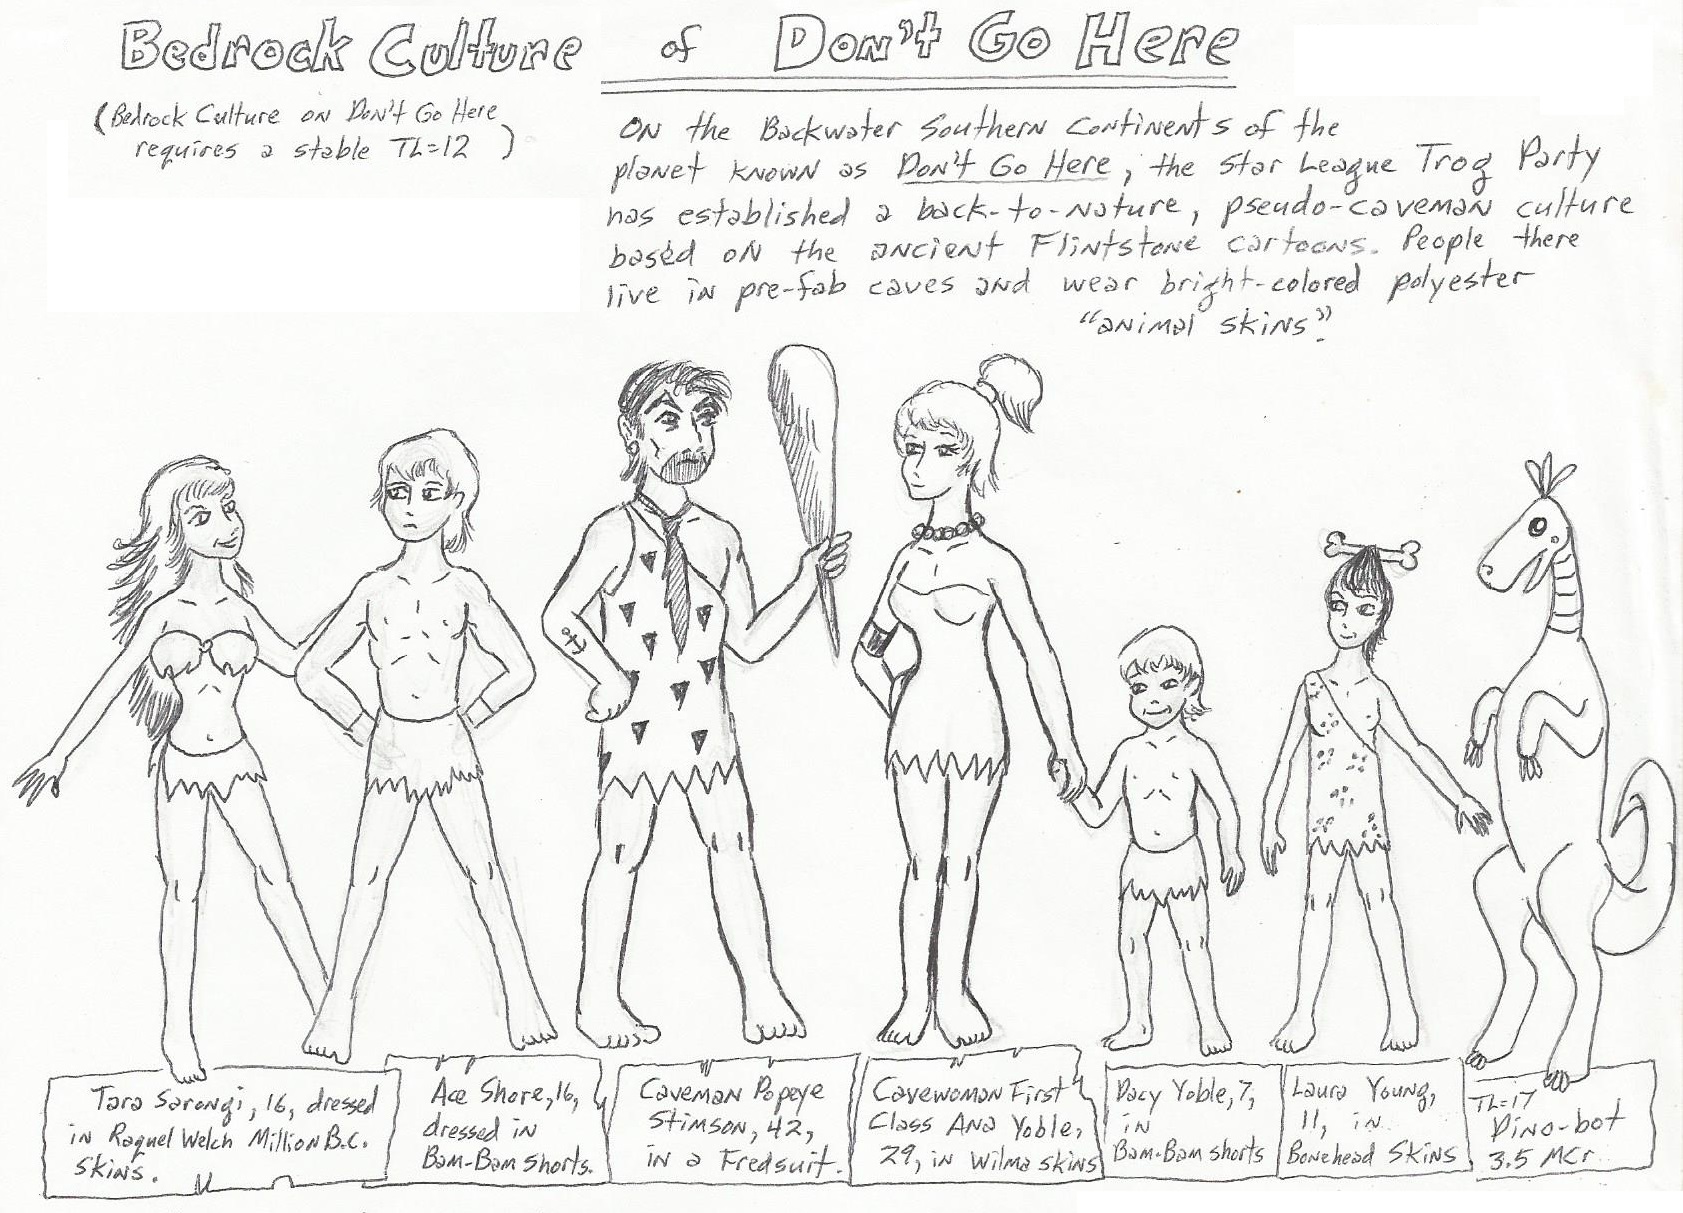 Bedrock Culture of Don't Go Here
(Bedrock Culture on Don't Go Here
requires a stable TL=12)
On the Backwater Southern Continents of the
planet known as Don't Go Here, the Star League Trog Party
has established a back-to-nature, pseudo-caveman culture
based on the ancient Flintstone cartoons. People there
live in pre-fab caves and wear bright-colored polyester
"animal skins".
Tara Sarongi, 16, dressed
in Raquel Welch Million B.C.
skins.
Ace Shore, 16,
dressed in
Bam-Bam shorts.
Caveman Popeye
Stimson, 42,
in a Fredsuit.
Cavewoman First
Class Ana Yoble,
29, in Wilma skins
Dacy Yoble, 7,
in
Bam-Bam shorts
Laura Young,
11, in
Bonehead Skins
TL=17
Dino-bot
3.5 MCr.